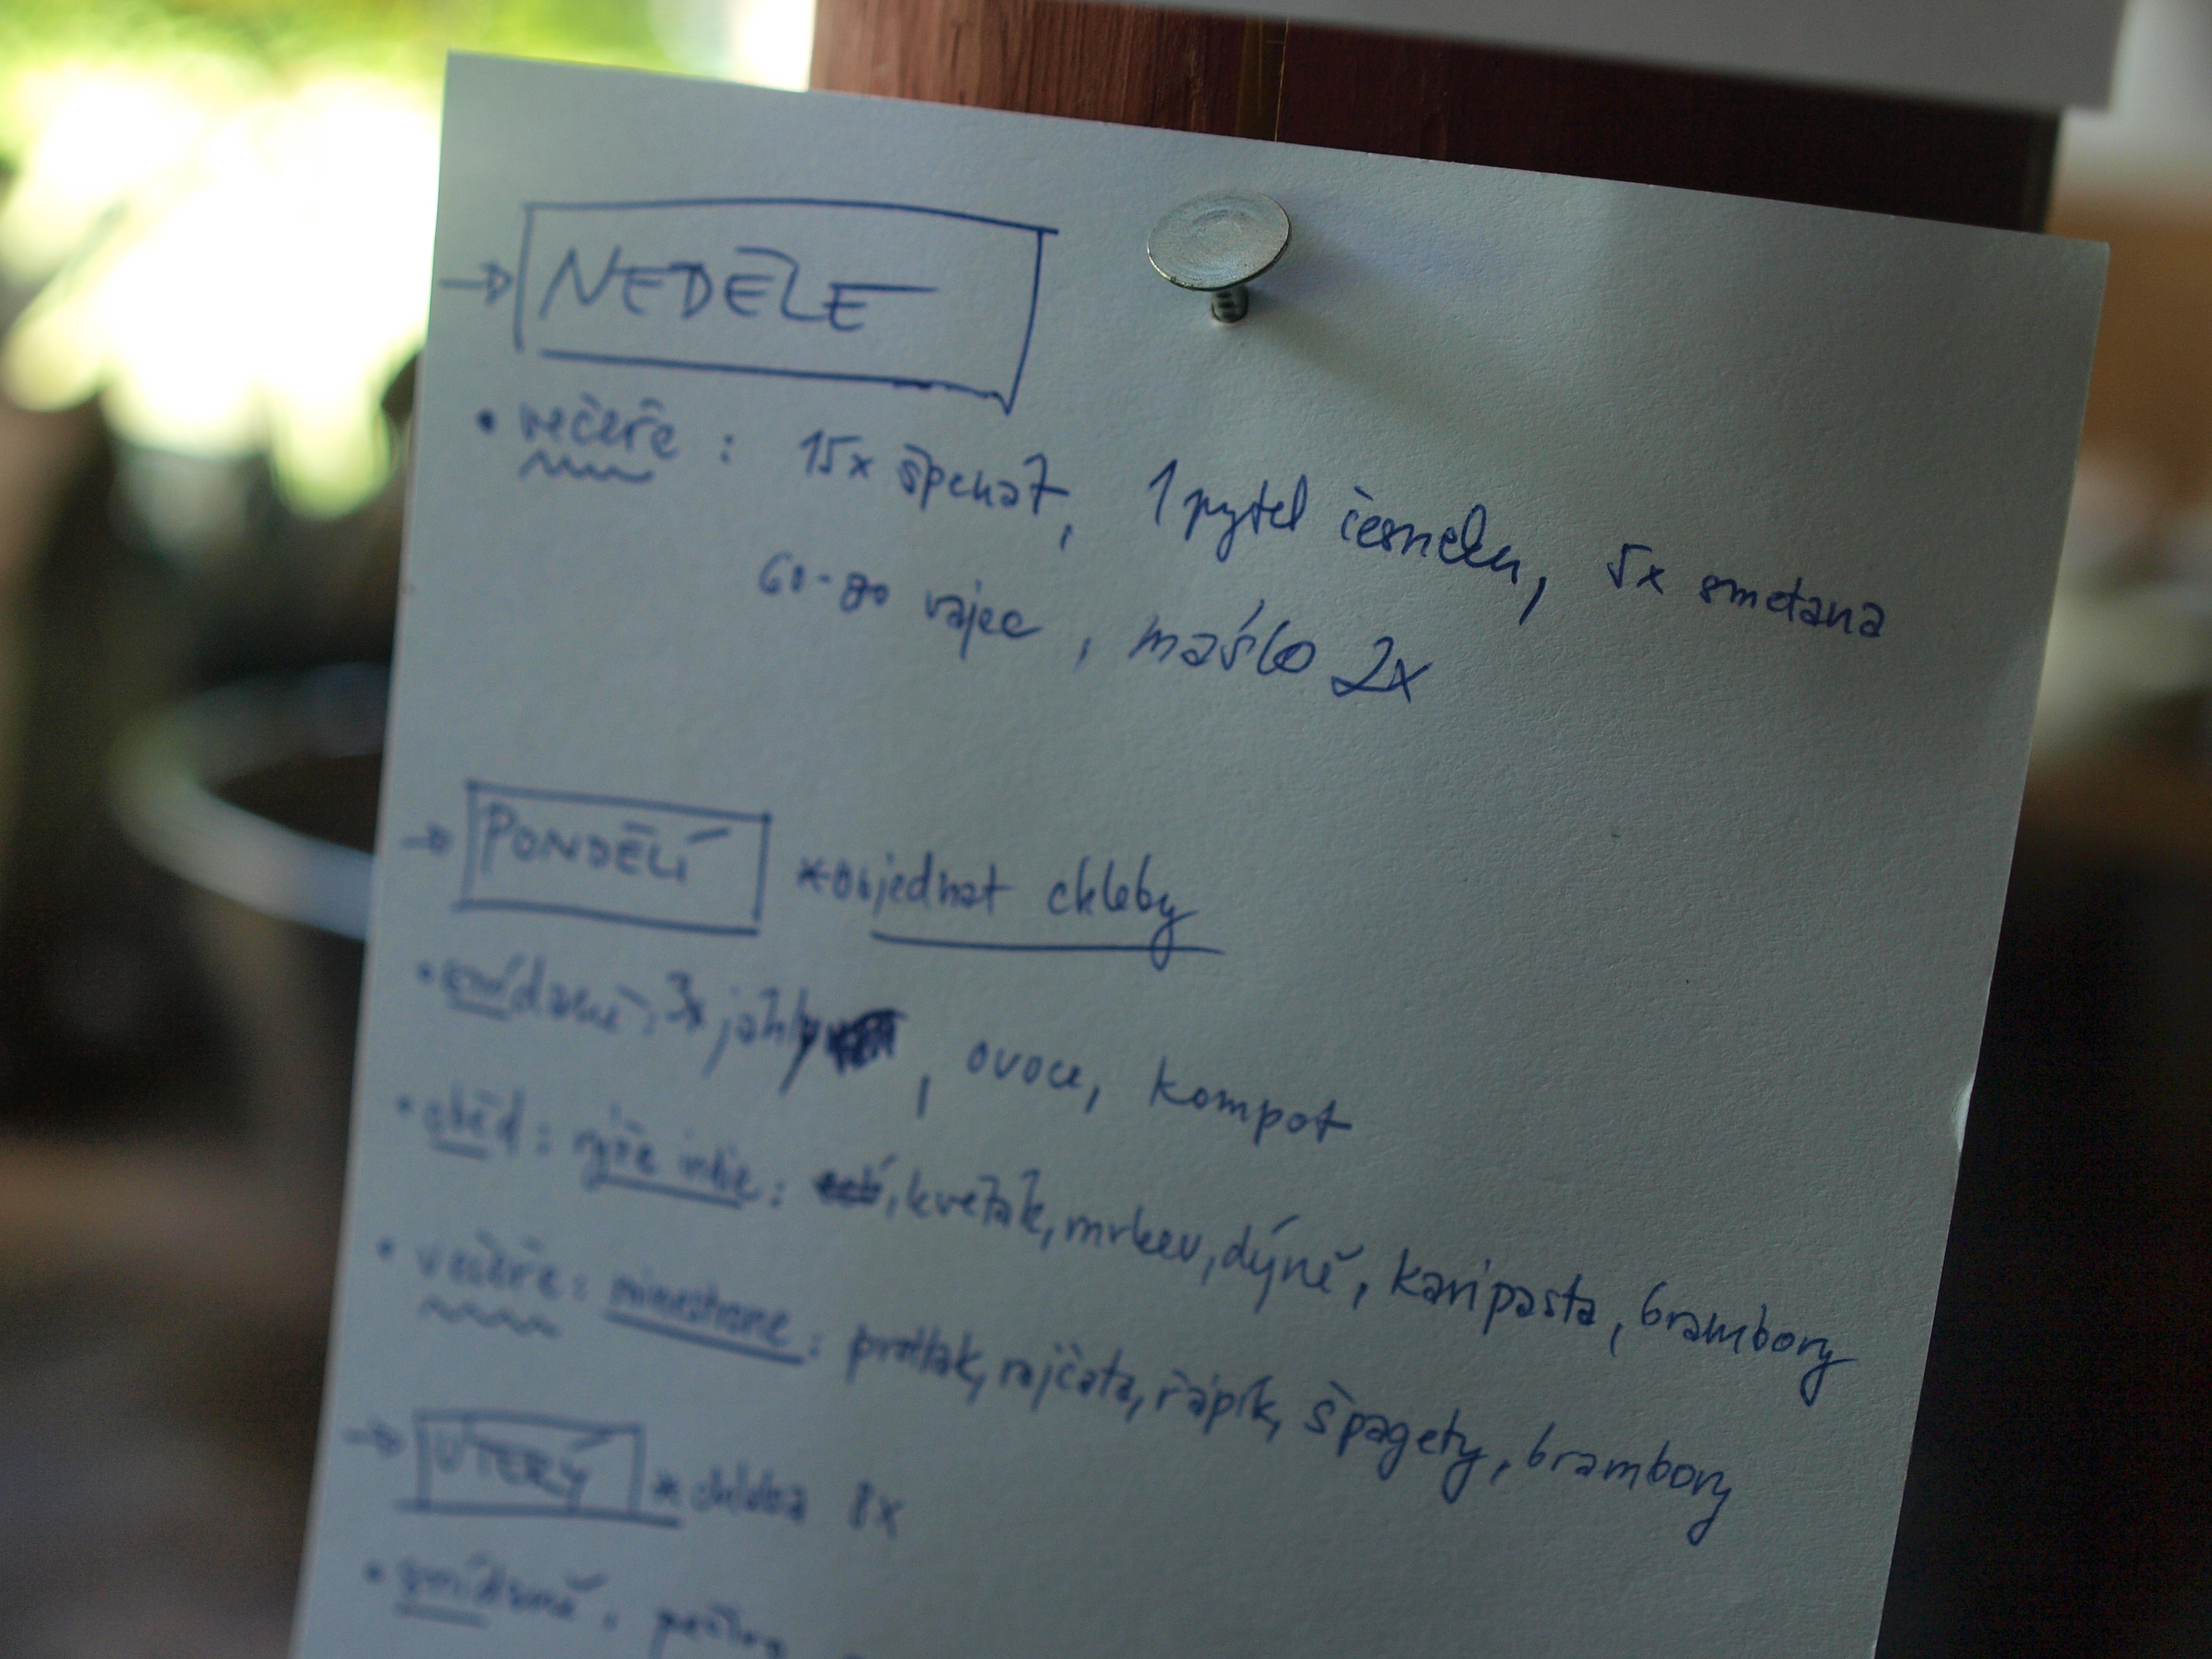 → NEDĚLE
• večeře : 15x špenat, 1 pytel česneku, 5x smetana
60-80 vajec, máslo 2x
→ PONDĚLÍ *objednat chleby
• snídaně : 3x jahly, ovoce, kompot
• oběd : rýže indie : květák, mrkev, dýně, kari pasta, brambory
• večeře : minestrone : protlak, rajčata, řapík, špagety, brambory
→ ÚTERÝ * chleba 8x
• snídaně :